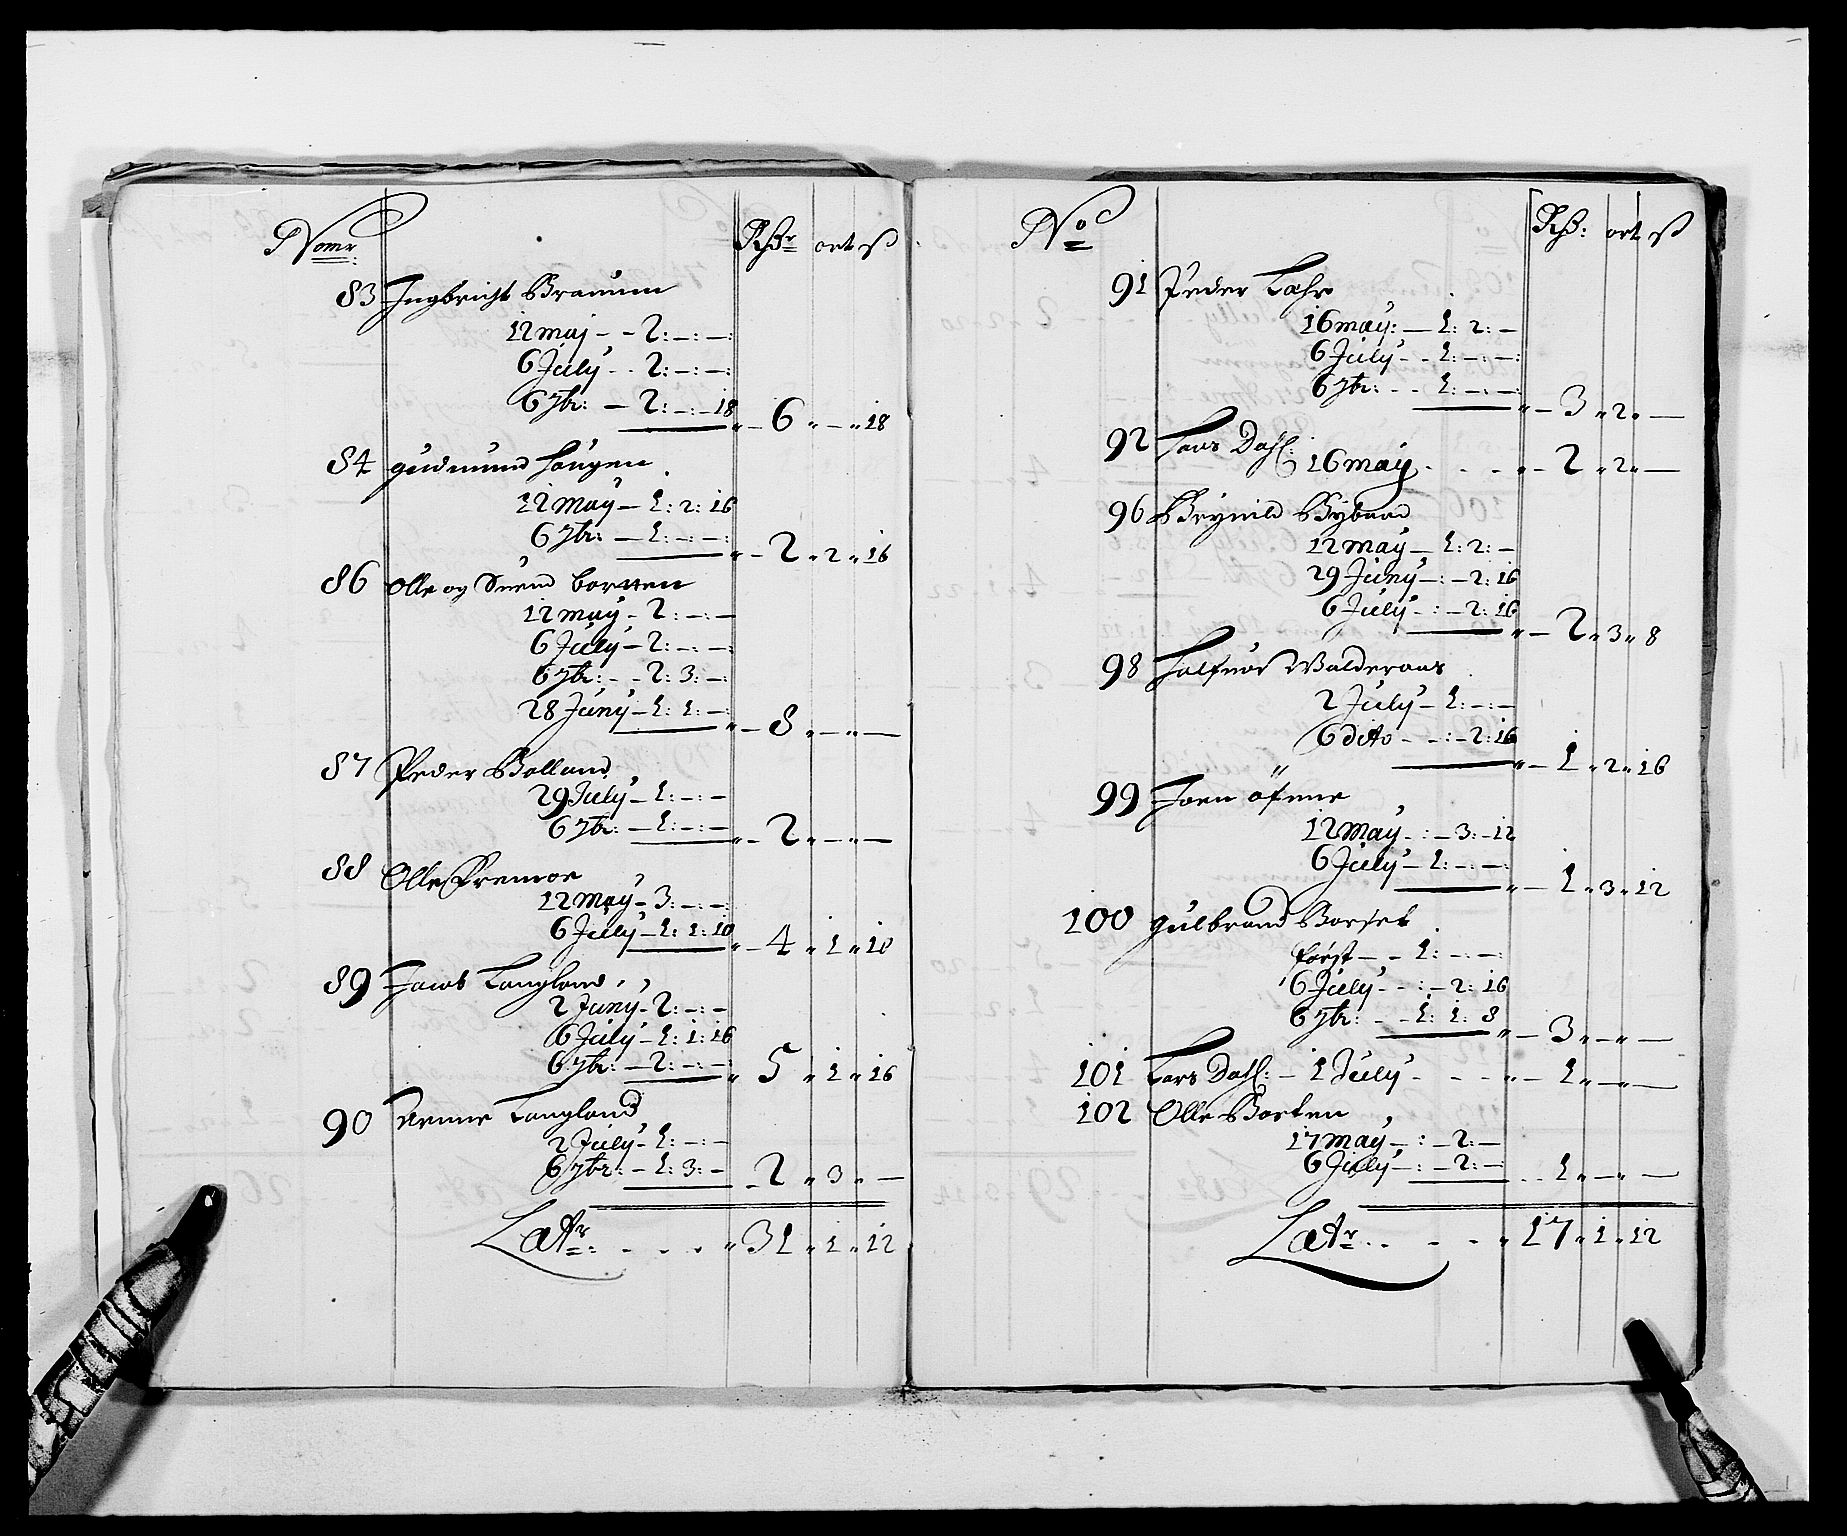 Nomr Rdr ort ß
83 Ingbricht Bramum
12 maj - - 2: - : -
6 July - - 2: - : -
6 7br: - 2: - : - 18 " - 6 " - " 18
84 gudmund Haugen
12 may - 1: 2: 16
6 7br: - 1: - : - " - 2 " 2 " 16
86 Olle og Suend bortten
12 may - 2: - : -
6 July - 2: - : -
6 7br: - - 2: 3: -
28 Juny - 1: 1: - " - 8 " - " -
87 Peder Bolland
29 July - 1: - : -
6 7br: - 1: - : - " - 2 " - " -
88 Olle Kremoe
12 may - 3: - : -
6 July - 1: 1: 10 " - 4 " 1 " 10
89 Jacob Langland
2 Juny - 2: - : -
6 July - 1: 1: 16
6 7br: - 2: - : - " 5 " 1 " 16
90 Langland
2 July - 1: - : -
6 7br: - 1: 3: - - 2 " 3 " -
Latr: . . . " 31 " 1 " 12
No Rd: ort ß
91 Peder
16 may: - 1: 2: -
6 July - - 1: - : -
6 7br: - - 1: - : - " - 3 " 2 " -
92 Lars Dahl:
16 may . . . " - 2 " 2 " -
96 Brynild
12 may - 1: 2: -
29 Juny - : - 2: 16
6 July - : - 2: 16 " - 2 " 3 " 8
98 Halfuor Walderaas
2 July - 1: - : -
6 dito - - : - 2: 16 " - 1 " 2 " 16
99 Joen öfune
12 may - : - 3: - 12
6 July - 1: - : - " - 1 " 3 " 12
100 gulbrand Borset
först - - 1: - : -
6 July - - : - 2: 16
6 7br: - - 1: 1: 8 " - 3 " - " -
101 Lars Dahl: - 1 July . . . " - 1 " - " -
102 Olle Borten
17 may - : - 2: -
6 July - : - 2: - . . 1 " - " -
Latr: . . . " 17 " 1 " 12